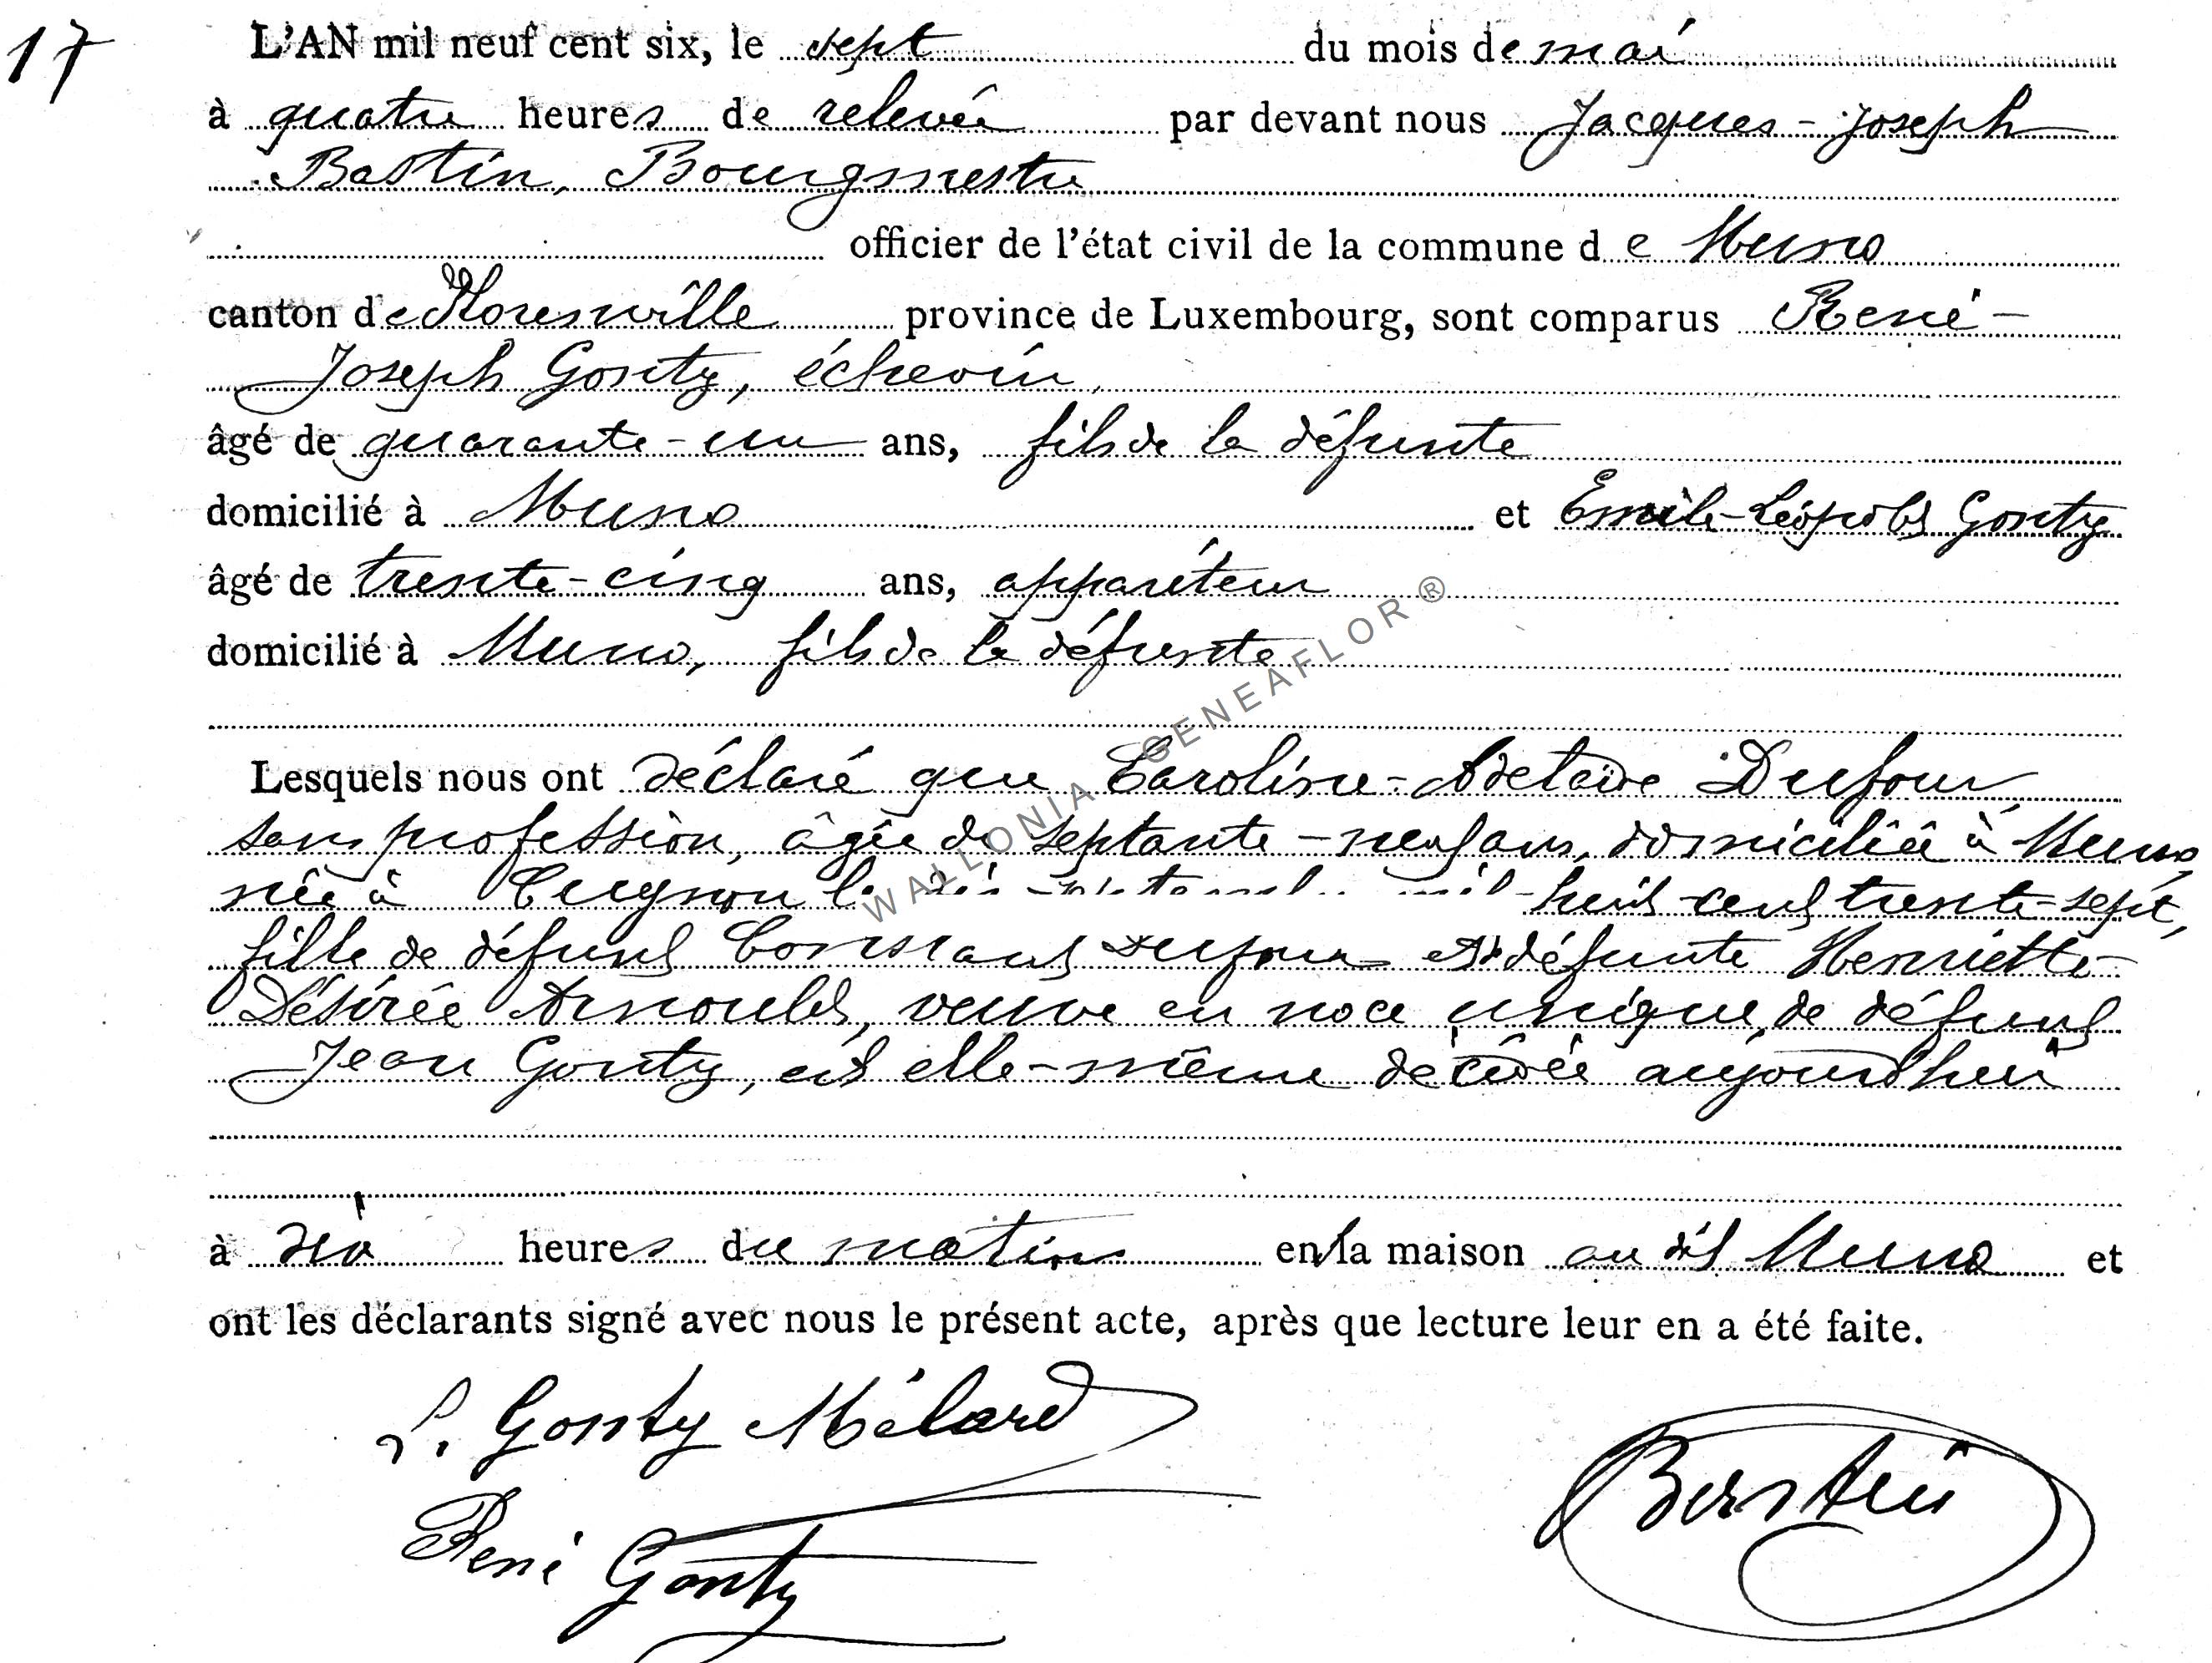 17 L'AN mil neuf cent six, le sept du mois de mai
à quatre heures de relevée par devant nous Jacques-Joseph
Bastin, Bourgmestre
officier de l'état civil de la commune de Muno
canton de Florenville province de Luxembourg, sont comparus René-
Joseph Gonty, échevin,
âgé de quarante-un ans, fils de la défunte
domicilié à Muno et Emile-Léopold Gonty
âgé de trente-cinq ans, appariteur
domicilié à Muno, fils de la défunte
Lesquels nous ont déclaré que Caroline-Adelaïde Dufour,
sans profession, âgée de septante-neuf ans, domiciliée à Muno,
née à Cugnon le mil-huit-cent trente-sept,
fille de défunt Constant Dufour et défunte Henriette-
Désirée Arnould, veuve en noce unique de défunt
Jean Gonty, est elle-même décédée aujourd'hui
à heures du matin en la maison au dit Muno et
ont les déclarants signé avec nous le présent acte, après que lecture leur en a été faite.
L. Gonty Mélard
René Gonty
Bastin
WALLONIA GENEAFLOR ®